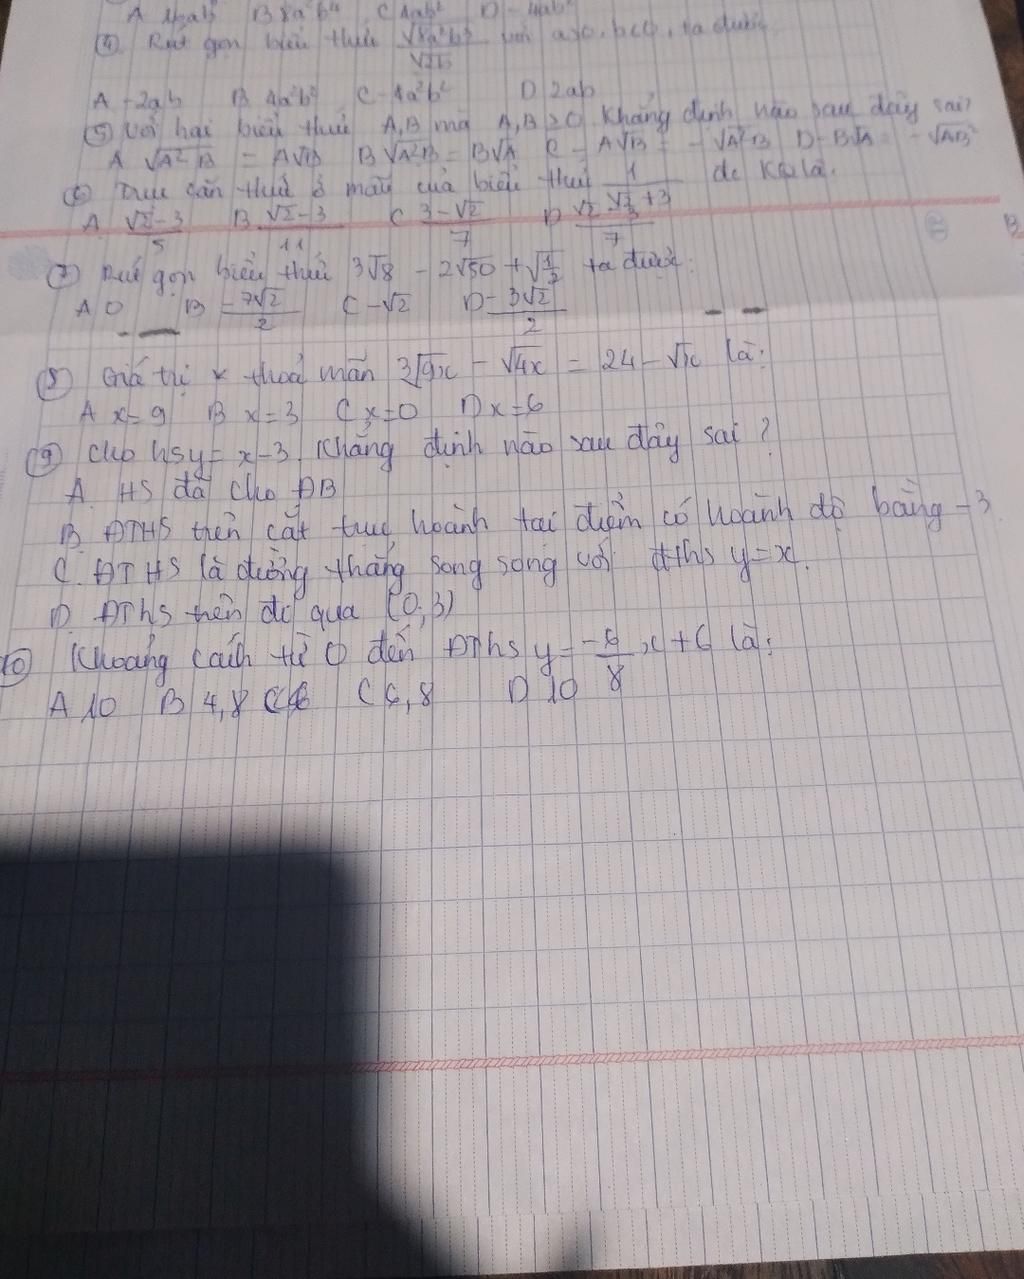 A 4ab² B 8a²b⁴ C 4ab² D -4ab²
④ Rút gọn biểu thức với a>0, b<0, ta được
A -2ab B 4a²b² C -4a²b² D 2ab
⑤ Với hai biểu thức A,B mà A,B ≥0 Khẳng định nào sau đây sai?
A √A²B = A√B B √A²B = B√A C - A√B = - √A²B D - B√A = -√AB²
⑥ Trục căn thức ở mẫu của biểu thức 1/(√2+3) đc KQ là.
A (√2-3)/5 B (√2-3)/11 C (3-√2)/7 D (√2+3)/7
⑦ Rút gọn biểu thức 3√8 - 2√50 + √(1/2) ta được:
A 0 B -7√2/2 C -√2 D -3√2/2
⑧ Giá trị x thoả mãn 3√9x - √4x = 24 - √x là:
A x=9 B x=3 C x=0 D x=6
⑨ Cho hsy = x-3. Khẳng định nào sau đây sai?
A. HS đã cho ĐB
B. ĐTHS trên cắt trục hoành tại điểm có hoành độ bằng -3
C. ĐTHS là đường thẳng song song với đths y=x.
D. ĐThs trên đi qua (0;3)
⑩ Khoảng cách từ O đến ĐThs y = -6/8 x + 6 là:
A 10 B 4,8 C 6,8 D 10